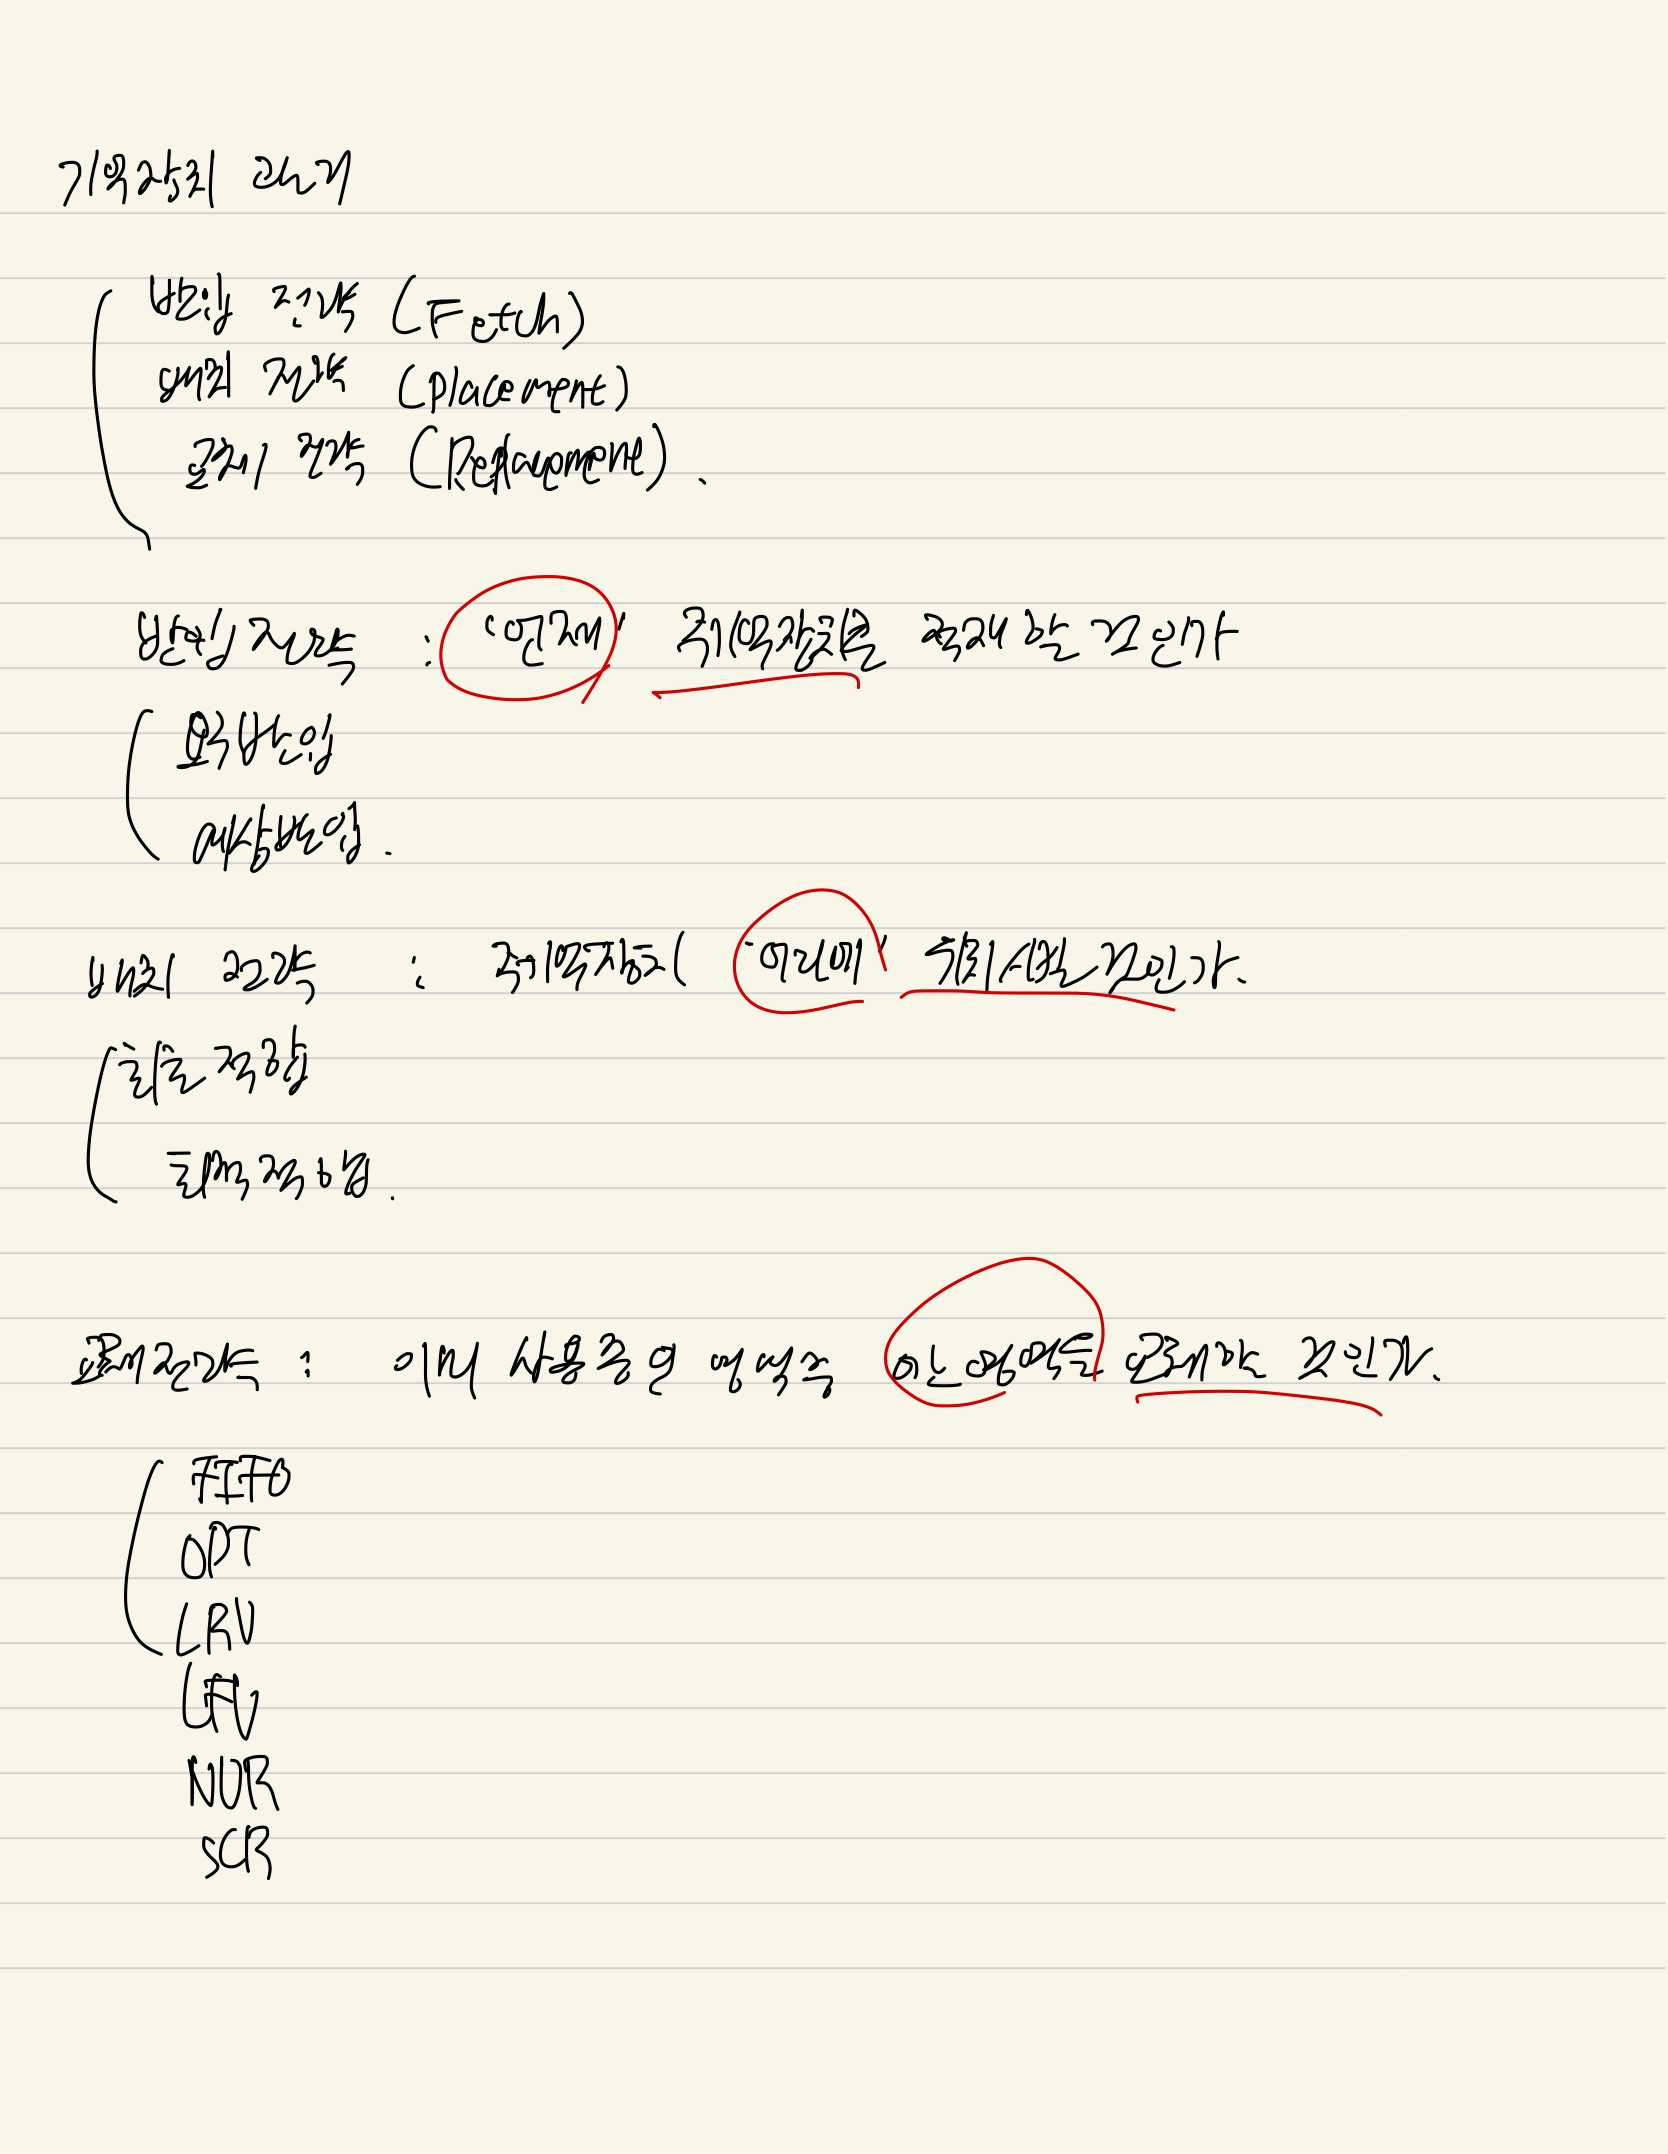 기억장치 관리
반입 전략 (Fetch)
배치 전략 (Placement)
교체 전략 (Replacement).
반입전략 : '언제' 주기억장치를 적재 할 것인가
요구반입
예상반입.
배치 전략 : 주기억장치 '어디에' 위치시킬 것인가.
최초 적합
최적 적합.
교체전략 : 이미 사용중인 영역중 어느 영역을 교체할 것인가.
FIFO
OPT
LRU
LFU
NUR
SCR